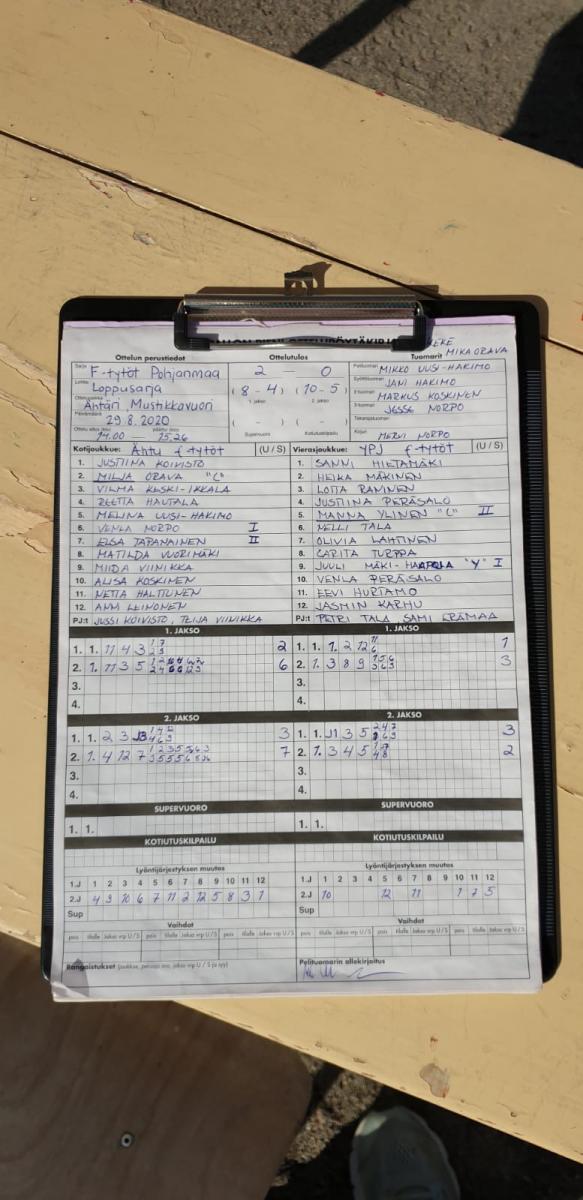 Ottelun perustiedot Ottelutulos Tuomarit
MIKA ORAVA
Sarja F-tytöt Pohjanmaa 2 — 0 Pelituomari MIKKO UUSI-HAKIMO
Lohko Loppusarja (8 - 4) (10 - 5) Syöttötuomari JANI HAKIMO
1. jakso 2. jakso 2-tuomari MARKUS KOSKINEN
Ähtäri, Mustikkavuori 3-tuomari JESSE NORPO
Päivämäärä 29.8.2020 ( - ) ( - ) Takarajatuomari
Ottelu alkoi (klo) päättyi (klo) Supervuoro Kotiutuskilpailu
14.00 — 15.26 Kirjuri MERVI NORPO
Kotijoukkue: Ähtu f-tytöt (U / S) Vierasjoukkue: YPJ f-tytöt (U / S)
1. JUSTIINA KOIVISTO 1. SANNI HIETAMÄKI
2. MILJA ORAVA "C" 2. HEIKA MÄKINEN
3. VILMA KESKI-IKKALA 3. LOTTA RAVINEN
4. REETTA HAUTALA 4. JUSTIINA PERÄSALO
5. MELINA UUSI-HAKIMO 5. MANNA YLINEN "C" II
6. VENLA NORPO I 6. NELLI TALA
7. ELSA JAPANAINEN II 7. OLIVIA LAHTINEN
8. MATILDA VUORIMÄKI 8. CARITA TURPPA
9. MIIDA VIINIKKA 9. JUULI MÄKI-HAAPOJA "Y" I
10. ALISA KOSKINEN 10. VENLA PERÄSALO
11. NETTA HALTTUNEN 11. EEVI HURTAMO
12. ANNI LEINONEN 12. JASMIN KARHU
PJ:t JUSSI KOIVISTO, TEIJA VIINIKKA PJ:t PETRI TALA SAMI ERÄMAA
1. JAKSO 1. JAKSO
1. 1. 11 4 3 2 1. 1. 1. 2 12 1
2. 1. 11 3 5 6 2. 1. 3 8 9 3
3. 3.
4. 4.
2. JAKSO 2. JAKSO
1. 1. 2 3 3 1. 1. 11 3 5 3
2. 1. 4 12 7 7 2. 1. 3 4 5 2
3. 3.
4. 4.
SUPERVUORO SUPERVUORO
1. 1. 1. 1.
KOTIUTUSKILPAILU KOTIUTUSKILPAILU
Lyöntijärjestyksen muutos Lyöntijärjestyksen muutos
1.J 1 2 3 4 5 6 7 8 9 10 11 12 1.J 1 2 3 4 5 6 7 8 9 10 11 12
2.J 4 9 10 6 7 11 2 12 5 8 3 1 2.J 10 12 11 1 7 5
Sup Sup
Vaihdot Vaihdot
pois tilalle Jakso vrp U / S pois tilalle Jakso vrp U / S pois tilalle Jakso vrp U / S pois tilalle Jakso vrp U / S
Rangaistukset (joukkue, peruste, nro, jakso vrp U / S ja syy) Pelituomarin allekirjoitus